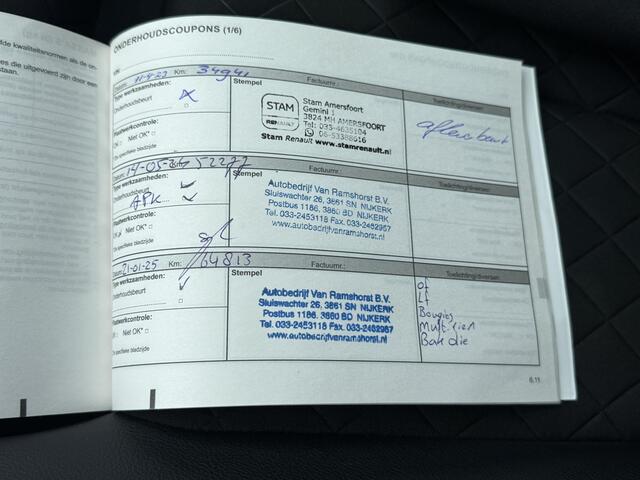 ONDERHOUDSCOUPONS (1/6)
de kwaliteitsnormen als de on-
es die uitgevoerd zijn door een
staan.
VIN:
Datum: Km: 34941
Stempel Factuurnr.: Toelichting/diversen
Type werkzaamheden:
Onderhoudsbeurt
STAM
RENAULT
Stam Amersfoort
Gemini 1
3824 MH AMERSFOORT
Tel: 033-4635104
06-53388616
Stam Renault www.stamrenault.nl
afleverbeurt
Plaatwerkcontrole:
OK Niet OK*
*Zie specifieke bladzijde
Km: 52277
Stempel Factuurnr.: Toelichting/diversen
Type werkzaamheden:
Onderhoudsbeurt
APK
Autobedrijf Van Ramshorst B.V.
Sluiswachter 26, 3861 SN NIJKERK
Postbus 1186, 3860 BD NIJKERK
Tel. 033-2453118 Fax. 033-2462967
www.autobedrijfvanramshorst.nl
Plaatwerkcontrole:
OK Niet OK*
*Zie specifieke bladzijde
Datum: 21-01-25 Km: 64813
Stempel Factuurnr.: Toelichting/diversen
Type werkzaamheden:
Onderhoudsbeurt
Autobedrijf Van Ramshorst B.V.
Sluiswachter 26, 3861 SN NIJKERK
Postbus 1186, 3860 BD NIJKERK
Tel. 033-2453118 Fax. 033-2462967
www.autobedrijfvanramshorst.nl
of
Lf
Bougies
Multi rien
Plaatwerkcontrole:
OK Niet OK*
*Zie specifieke bladzijde
6.11